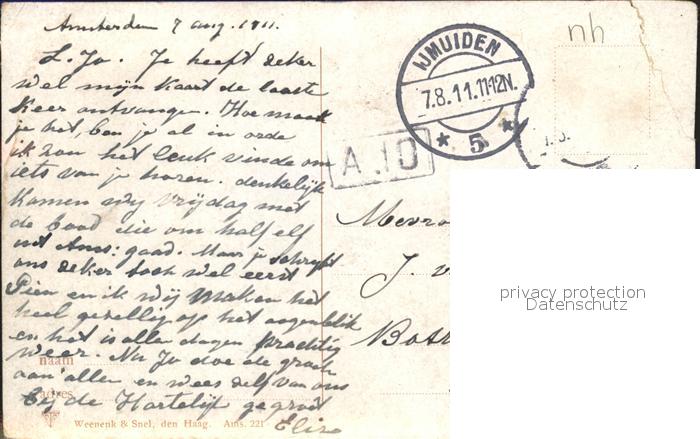 Amsterdam 7 aug. 1911.
L. Jo. Je heeft zeker
wel mijn kaart de laaste
keer ontvangen. Hoe maak
je het, ben je al in orde
ik zou het leuk vinde om
iets van je horen. denkelijk
komen wy vrijdag met
de boot die om half elf
uit Ams: gaad. Maar je schryft
ons zeker toch wel eerst
Pien en ik wij maken het
heel gezellig op het oogenblik
en het is alle dagen prachtig
weer. Nu Jo doe de groete
aan allen en wees zelf van ons
bij de Hartelijk gegroet
Elise
naam
adres
Weenenk & Snel, den Haag. Ams. 221
IJMUIDEN
7.8.11.11-12N.
* 5 *
A.10
nh
Mevro
J. v
Bott
privacy protection
Datenschutz